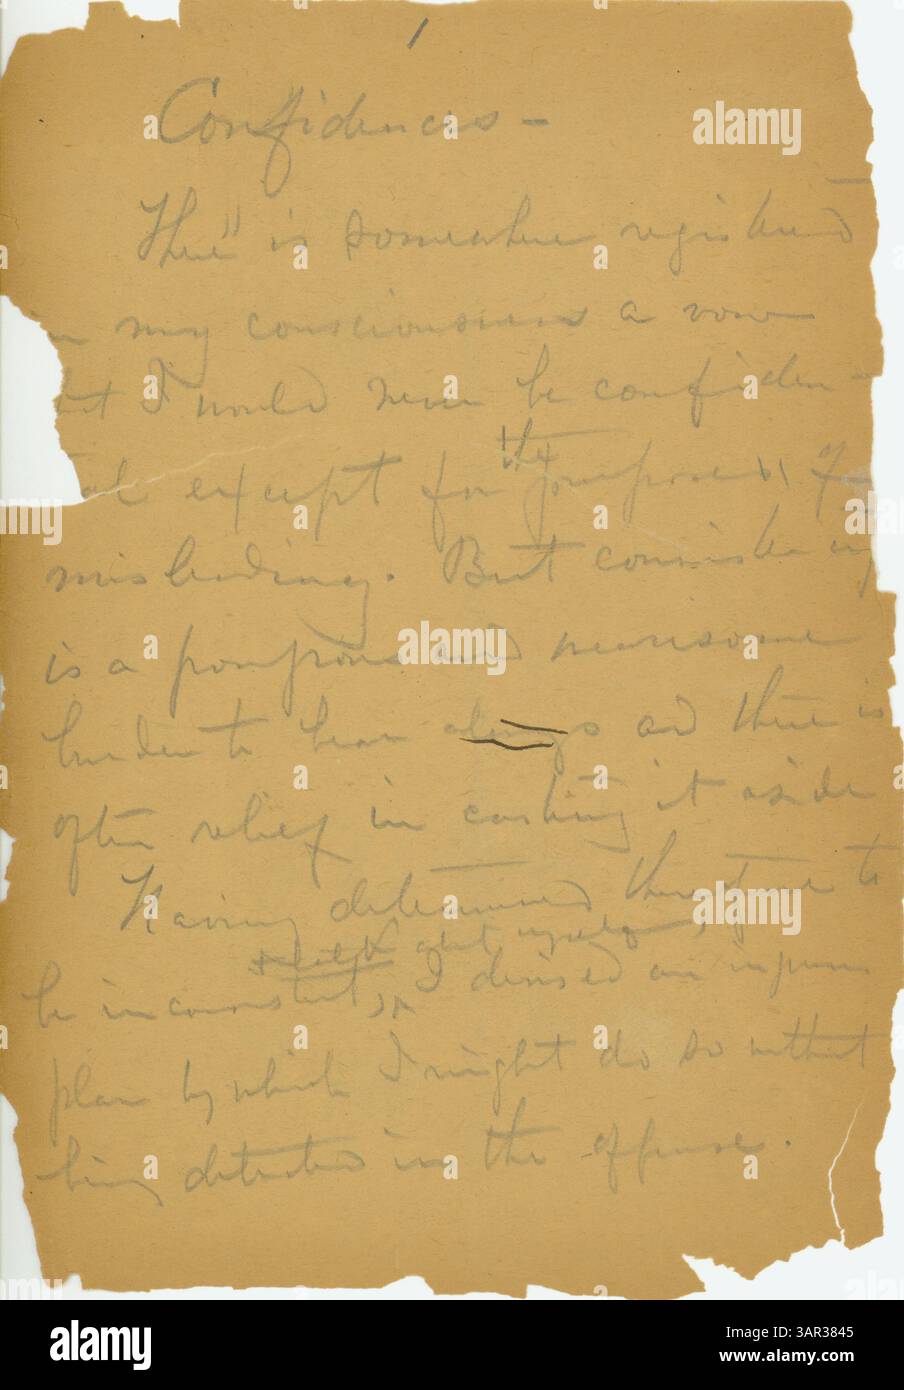 1
Confidences —
There is somewhere registered
in my consciousness a vow
that I would never be confiden-
tial except for the purpose of
misleading. But consistency
is a pompous and wearisome
burden to bear always and there is
often relief in casting it aside
Having determined therefore to
be inconsistent, I devised an ingenious
plan by which I might do so without
being detected in the offense.
alamy
alamy
alamy
alamy
Image ID: 3AR3845
www.alamy.com